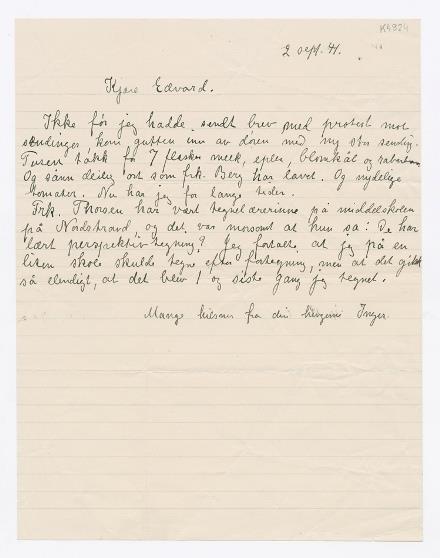 K4824
2 sept. 41.
Kjære Edvard.
Ikke før jeg hadde sendt brev med protest mot
sendinger, kom gutten inn av døren med ny stor sending.
Tusen takk for 7 flasker melk, epler, blomkål og rabarbra
Og sånn deilig ost som frk. Berg har lavet. Og nydelige
tomater. Nu har jeg for lange tider.
Frk. Thorsen har vært tegnelærerinne på middelskolen
på Nordstrand, og det var morsomt at hun sa: De har
lært perspektivtegning? Jeg fortalte, at jeg på en
liten skole skulde tegne efter fortegning, men at det gikk
så elendigt, at det blev 1 og siste gang jeg tegnet.
Mange hilsner fra din Inger.